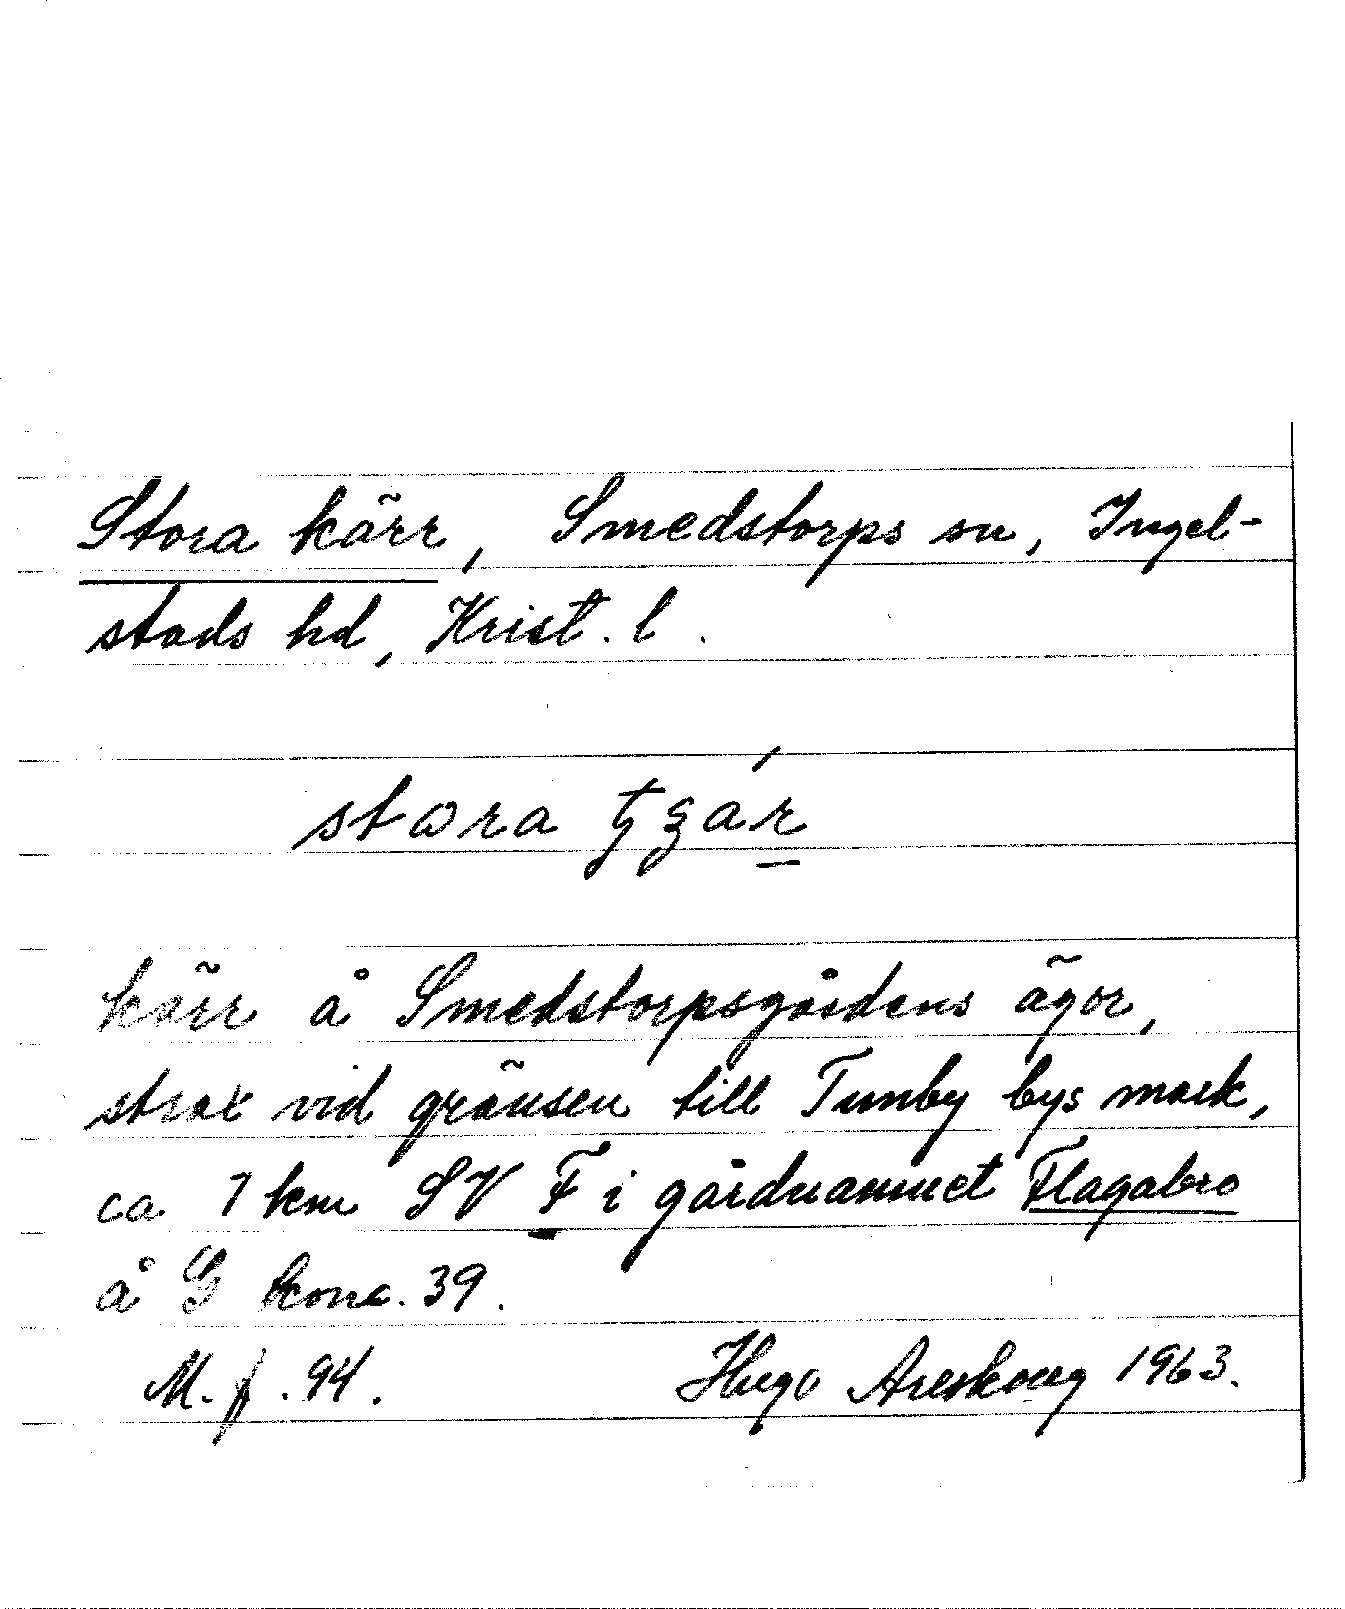 Stora kärr, Smedstorps sn, Ingel-
stads hd, Krist. l.
stora
kärr å Smedstorpsgårdens ägor,
strax vid gränsen till Tumby bys mark,
ca 1 km SV F i gårdnamnet Flagabro
å G kona. 39.
M. f. 94. Hugo Areskoug 1963.